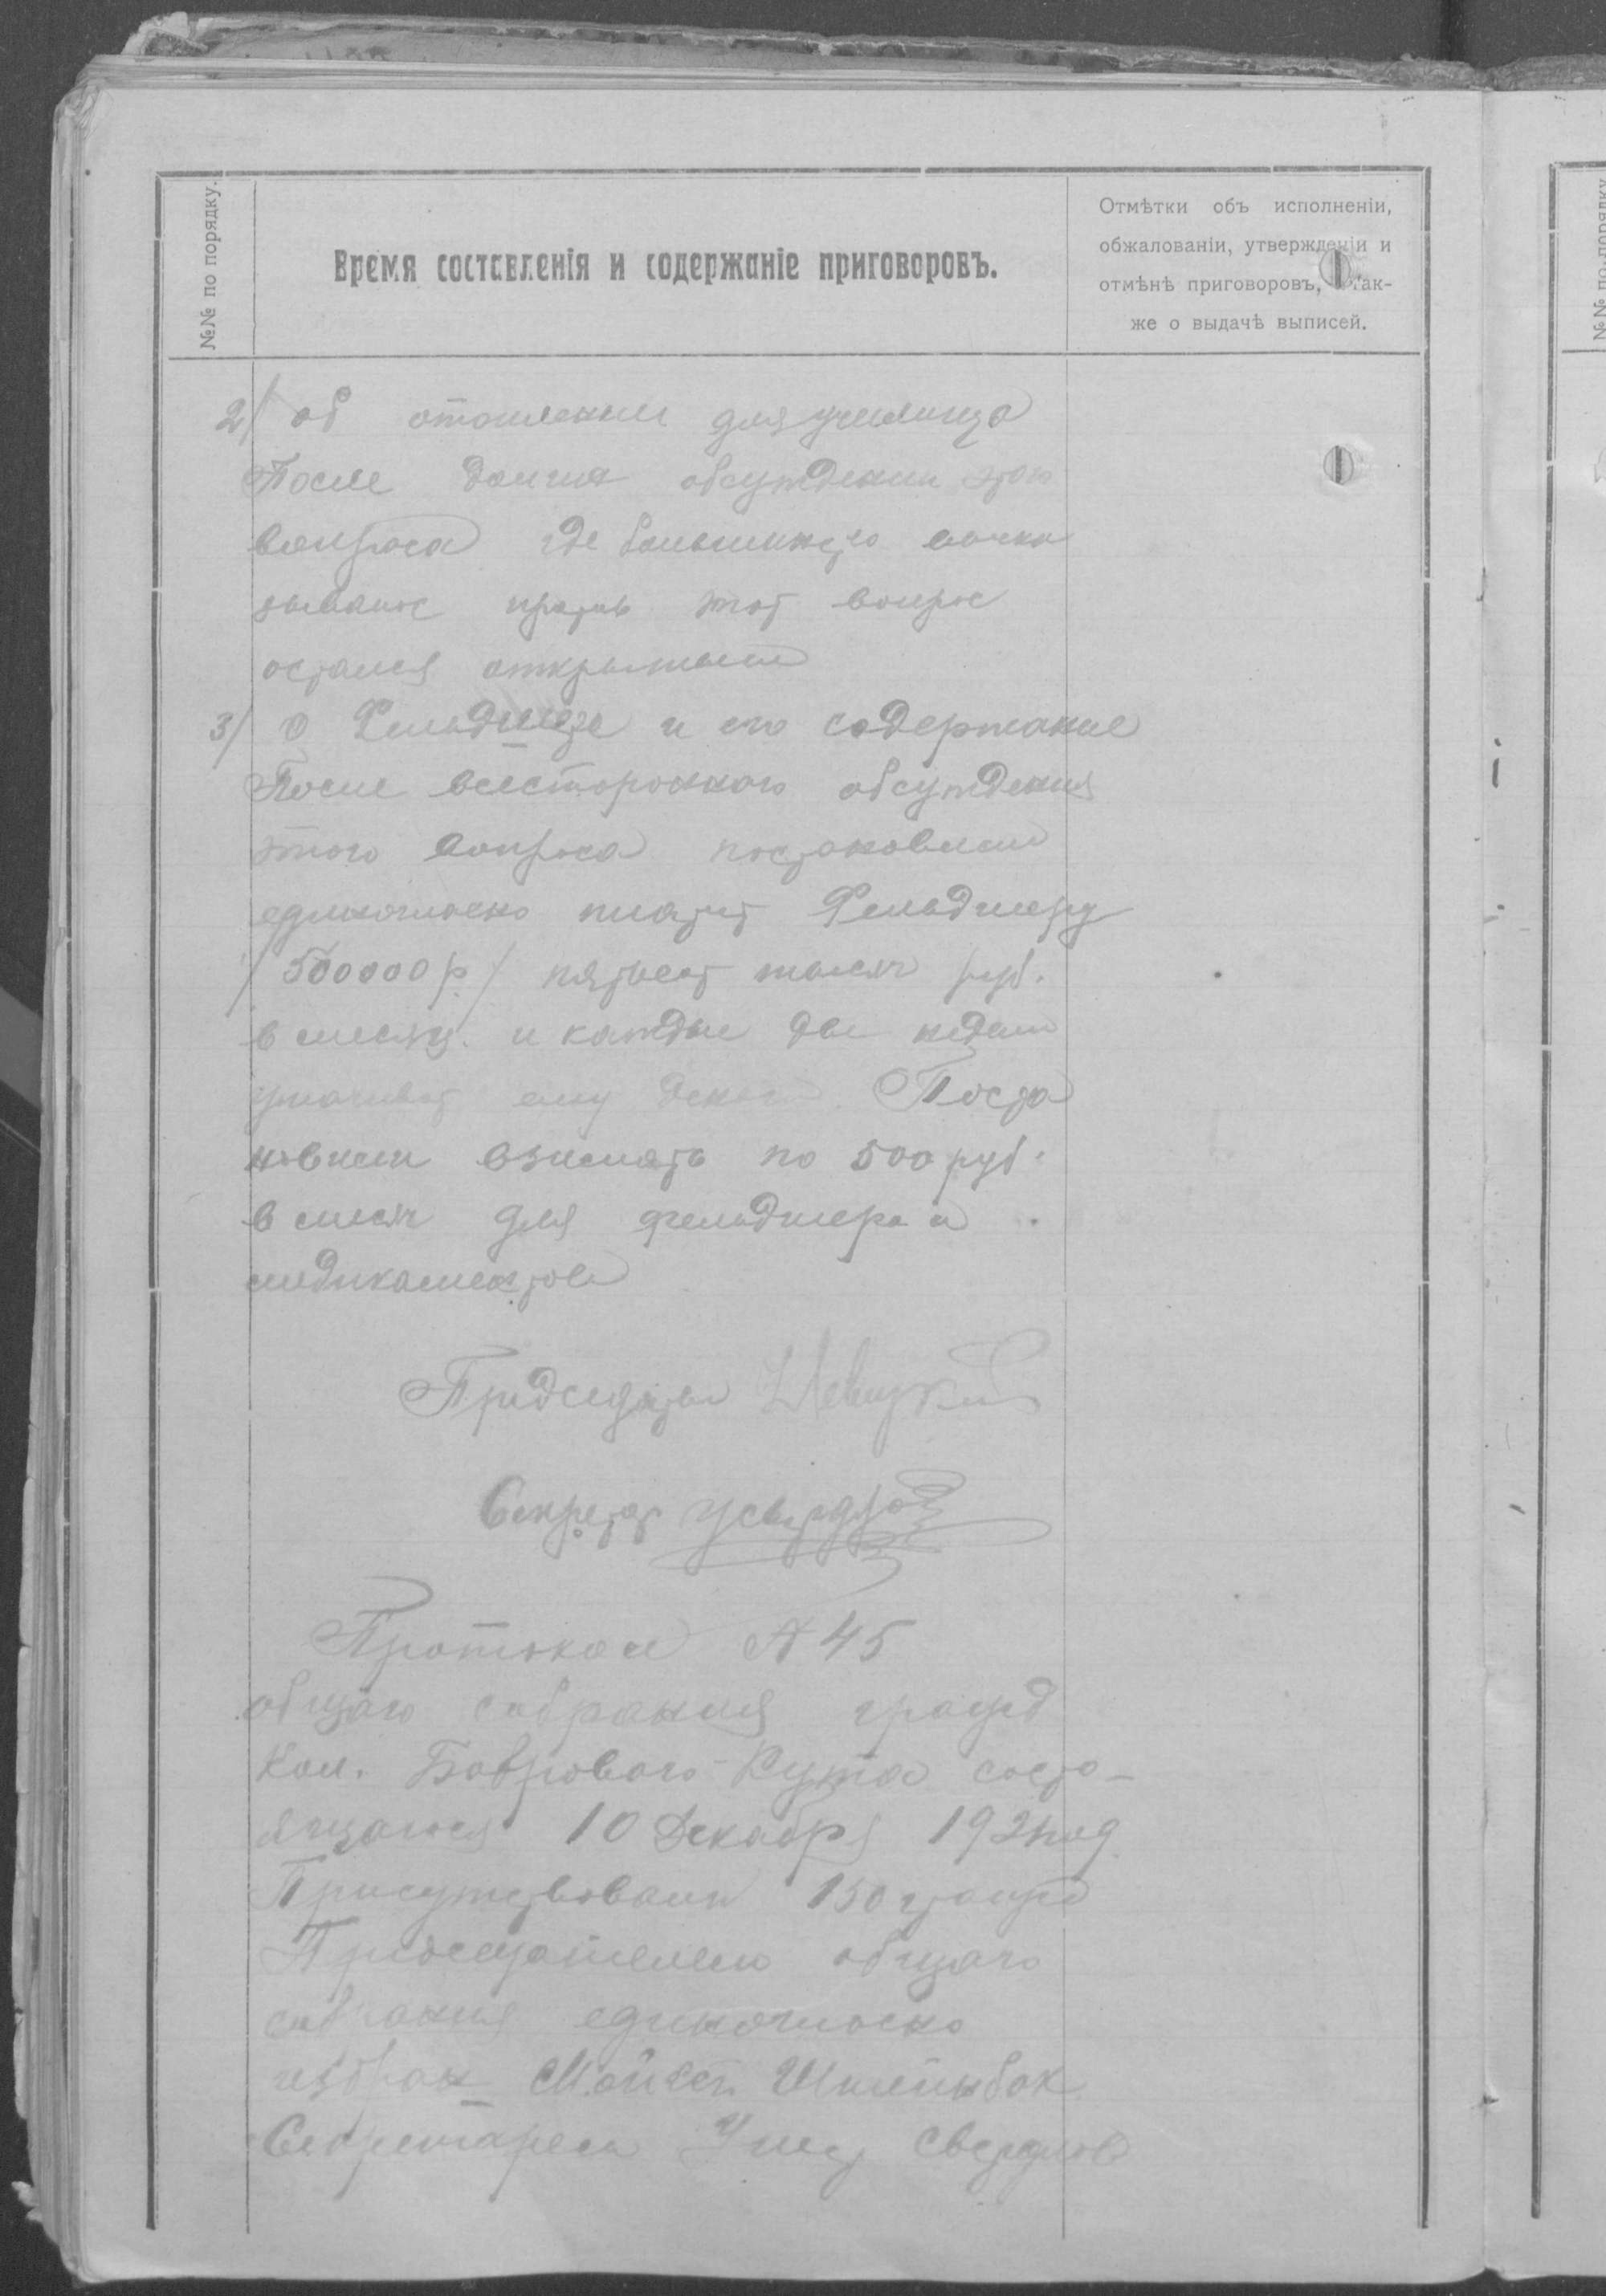 №№ по порядку.
Время составленія и содержаніе приговоровъ.
Отмѣтки объ исполненіи,
обжалованіи, утвержденіи и
отмѣнѣ приговоровъ, а так-
же о выдачѣ выписей.
№№ по порядку
2/ об отоплении для училища
После долгия обсуждении этого
вопроса где большинство выска
зывалос против этот вопрос
остался открытым
3/ О Фельдшере и его содержание
После всестороннаго обсуждения
этого вопроса постановили
единогласно платит Фельдшеру
/500000 р/ пятьсот тысяч руб.
в месяц. и каждые две недели
уплачиват ему деньги. Поста
новили взимать по 500 руб.
в месяч для фельдшера и
медикаментов
Председатель Левицкий
Секретар
Протокол № 45
общаго собрания гражд
Кол. Бобрового-Кута состо-
ящагося 10 Декабря 192 год
Присутствовали 150 гражд
Председателем общаго
собрания единогласно
избран Мойсей
Секретарем Свердлов